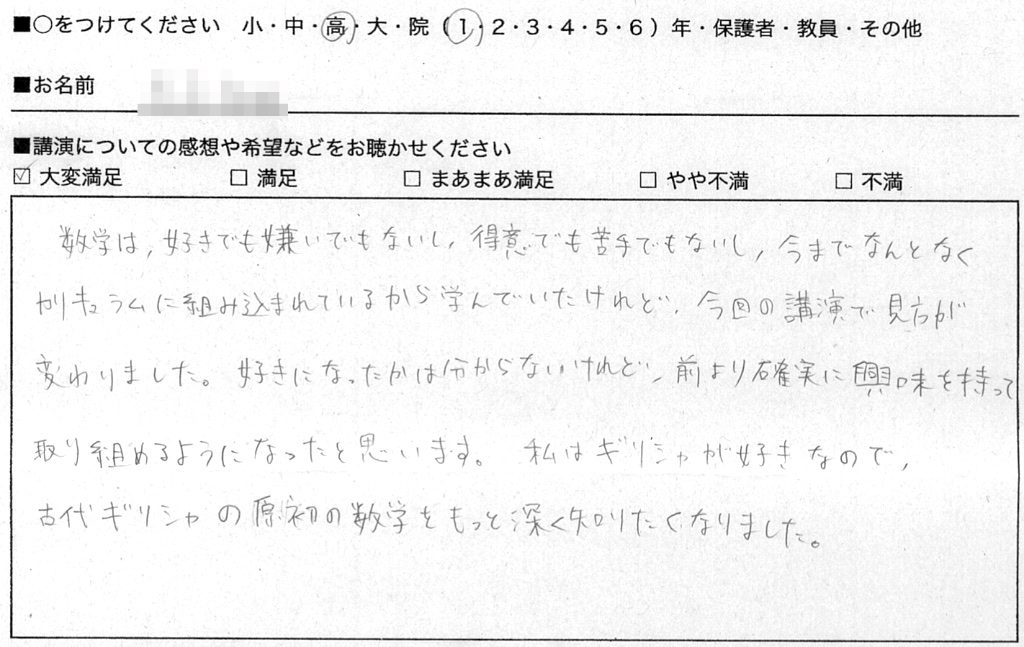 ■○をつけてください 小・中・高・大・院（1・2・3・4・5・6）年・保護者・教員・その他
■お名前
■講演についての感想や希望などをお聴かせください
☑ 大変満足 □ 満足 □ まあまあ満足 □ やや不満 □ 不満
数学は，好きでも嫌いでもないし，得意でも苦手でもないし，今までなんとなく
カリキュラムに組み込まれているから学んでいたけれど，今回の講演で見方が
変わりました。好きになったかは分からないけれど，前より確実に興味を持って
取り組めるようになったと思います。私はギリシャが好きなので，
古代ギリシャの原初の数学をもっと深く知りたくなりました。